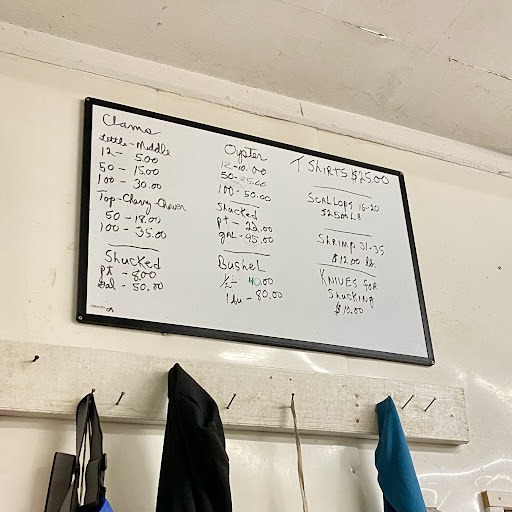 Clams
Little-Middle
12- 5.00
50- 15.00
100- 30.00
Top-Cherry-Chowder
50- 18.00
100- 35.00
Shucked
Pt - 8.00
Gal- 50.00
Oyster
12-10.00
50-25.00
100-50.00
Shucked
Pt - 22.00
gAL-95.00
Bushel
½- 40.00
1 bu- 80.00
T Shirts $25.00
Scallops 16-20
$25.00 LB
Shrimp 31-35
$12.00 lb.
Knives for
Shucking
$10.00